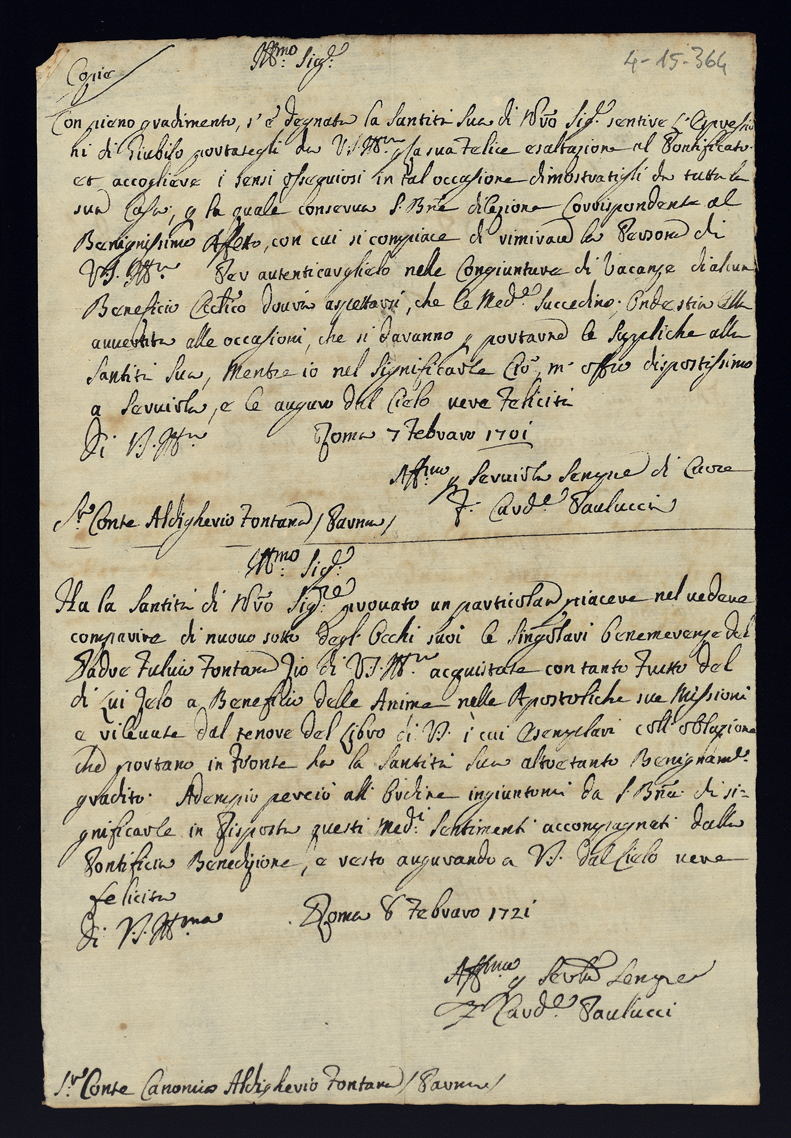 Copia
Ill.mo Sig.re
4-15-364
Con pieno gradimento, s'è degnata la Santità Sua di N'ro Sig.re sentire l'Espressio
ni di Giubilo portategli da V.S. Ill.ma p la sua felice esaltazione al Pontificato
et accogliere i sensi ossequiosi in tal occasione dimostratigli da tutta la
sua Casa, p la quale conserva S. B'ne dilezione Corrispondente al
Benignissimo Affetto, con cui si compiace di rimirare la Persona di
V.S. Ill.ma Per autenticarglielo nelle Congiunture di Vacanze di alcun
Beneficio Ecc'tico dovrà aspettarsi, che le Med.e succedino; Onde stia ella
avvertita alle occasioni, che si daranno p portarne le suppliche alla
Santità Sua, Mentre io nel significarle Ciò, m'offro dispostissimo
a Servirla, e le auguro dal Cielo vere felicità
Di V.S. Ill.ma Roma 7 Febraro 1701
Aff.mo p Servirla Sempre di Cuore
F. Card.le Paulucci
S.r Conte Aldigherio Fontana / Parma /
Ill.mo Sig.re
Ha la Santità di N'ro Sig.re provato un particolare piacere nel vedere
comparire di nuovo sotto degl'Occhi suoi le singolari benemerenze del
Padre Fulvio Fontana Zio di V.S. Ill.ma acquistate con tanto frutto del
di Lui Zelo a Beneficio delle Anime nelle Apostoliche sue Missioni
e rilevate dal tenore del Libro di V.S. i cui Esemplari coll'oblazione
che portano in fronte ha la Santità Sua altretanto Benignam.te
gradito. Adempio perciò all'Ordine ingiuntomi da S. B'ne di si-
gnificarle in Risposta questi Med.i Sentimenti accompagnati dalla
Pontificia Benedizione, e resto augurando a V.S. dal Cielo vere
felicità
Di V.S. Ill.ma Roma 8 Febraro 1721
Aff.mo p Serv.la Sempre
F. Card.le Paulucci
S.r Conte Canonico Aldigherio Fontana / Parma /